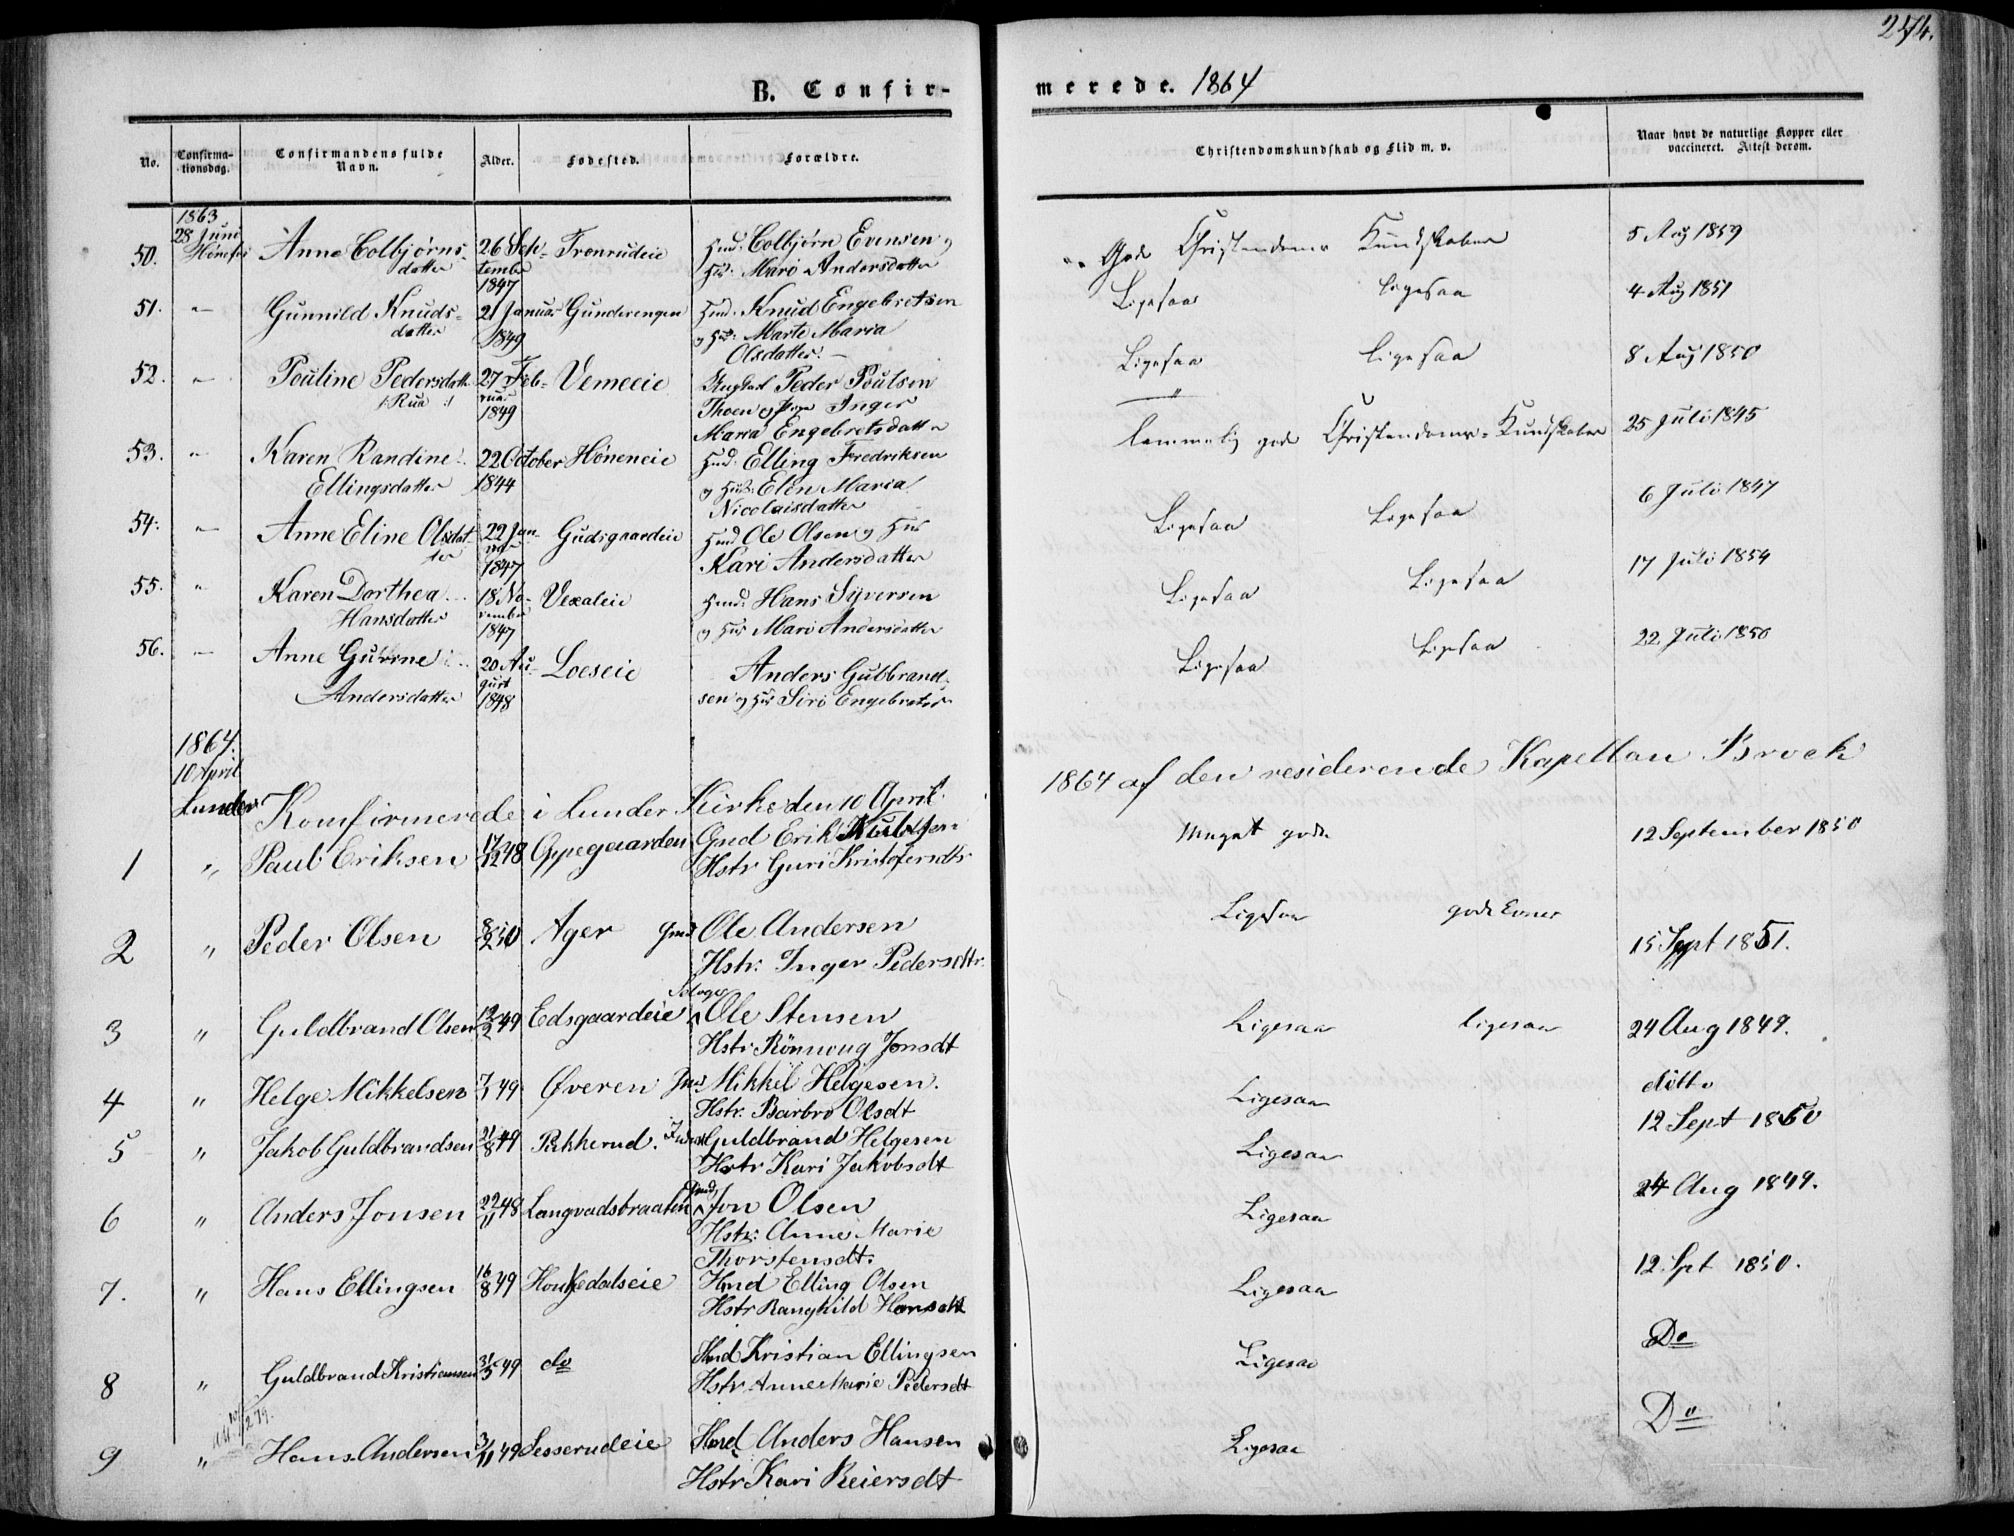 244.
B. Confir-
merede. 1864
No.
Confirma-
tionsdag.
Confirmandens fulde
Navn.
Alder.
Fødested.
Forældre.
Christendomskundskab og Flid m. v.
Naar havt de naturlige Kopper eller
vaccineret. Attest derom.
1863
28 Juni
Hønefos
50. Anne Colbjørns- 26 Sep- Fronrudeie Hmd: Colbjørn Evensen og Gode Christendoms Kundskaber 5 Aug 1859
datter tember Hus: Mari Andersdatter
1847
51. Gunnild Knuds- 21 Januar Gunderengen Hmd: Knud Engebretsen Ligesaa ligesaa 4 Aug 1851
datter 1849 og Hus: Marte Maria
Olsdatter.
52. Pouline Pedersdatt 27 Feb- Vemeeie Peder Poulsen Ligesaa ligesaa 8 Aug 1850
/: Rua :/ ruar Thoen og Inger
1849 Maria Engebretsdatter
53. Karen Randine 22 October Høneneie Hmd: Elling Fredriksen temmelig gode Christendoms-Kundskaber 25 Juli 1845
Ellingsdatter 1844 og Hus: Elen Maria
Nicolaisdatter
54. Anne Eline Olsdat 22 Jan- Gudsgaardeie Hmd Ole Olsen og Hus Ligesaa Ligesaa 6 Juli 1847
ter uar Kari Andersdatter
1847
55. Karen Dorthea 18 No- Vexaleie Hmd: Hans Syversen Ligesaa Ligesaa 17 Juli 1854
Hansdatter vember og Hus Mari Andersdatter
1847
56. Anne Gurine 20 Au- Loeseie Anders Gulbrand- Ligesaa Ligesaa 22 Juli 1850
Andersdatter gust sen og Hus Siri Engebretsd
1848
1864.
10 April
Lunder Komfirmerede i Lunder Kirke den 10 April 1864 af den residerende Kapellan Brock
1 " Paul Eriksen 17/12 48 Oppegaarden Gmd Erik Meget gode 12 September 1850
Hstr Guri Kristofersdtr
2 " Peder Olsen 8/2 50 Ager Gmd Ole Andersen Ligesaa gode Evner 15 Sept 1851.
Hstr: Inger Pedersdtr.
3 " Guldbrand Olsen 12/2 49 Edsgaardeie Selveger Ole Stensen Ligesaa ligesaa 24 Aug 1849.
Hstr Rønnoug Jonsdt
4 " Helge Mikkelsen 7/1 49 Øveren Mikkel Helgesen. Ligesaa ditto
Hstr. Barbro Olsdt
5 " Jakob Guldbrandsen 21/8 49 Pukkerud. Guldbrand Helgesen Ligesaa 12 Sept 1850
Hstr Kari Jakobsdt
6 " Anders Jonsen 22/11 48 Langvadsbraaten Gmd Jon Olsen Ligesaa 24 Aug 1849.
Hstr: Anne Marie
Thorstensdt.
7. " Hans Ellingsen 16/8 49 Honkedalseie Hmd Elling Olsen Ligesaa 12 Spt 1850.
Hstr Ranghild Hansdt
8 " Guldbrand Kristiansen 31/3 49 do Hmd Kristian Ellingsen Ligesaa Do
Hstr Anne Marie Pedersdt
9 " Hans Andersen 3/11 49 Sesserudeie Hmd Anders Hansen Ligesaa Do
Hstr Kari Reiersdt